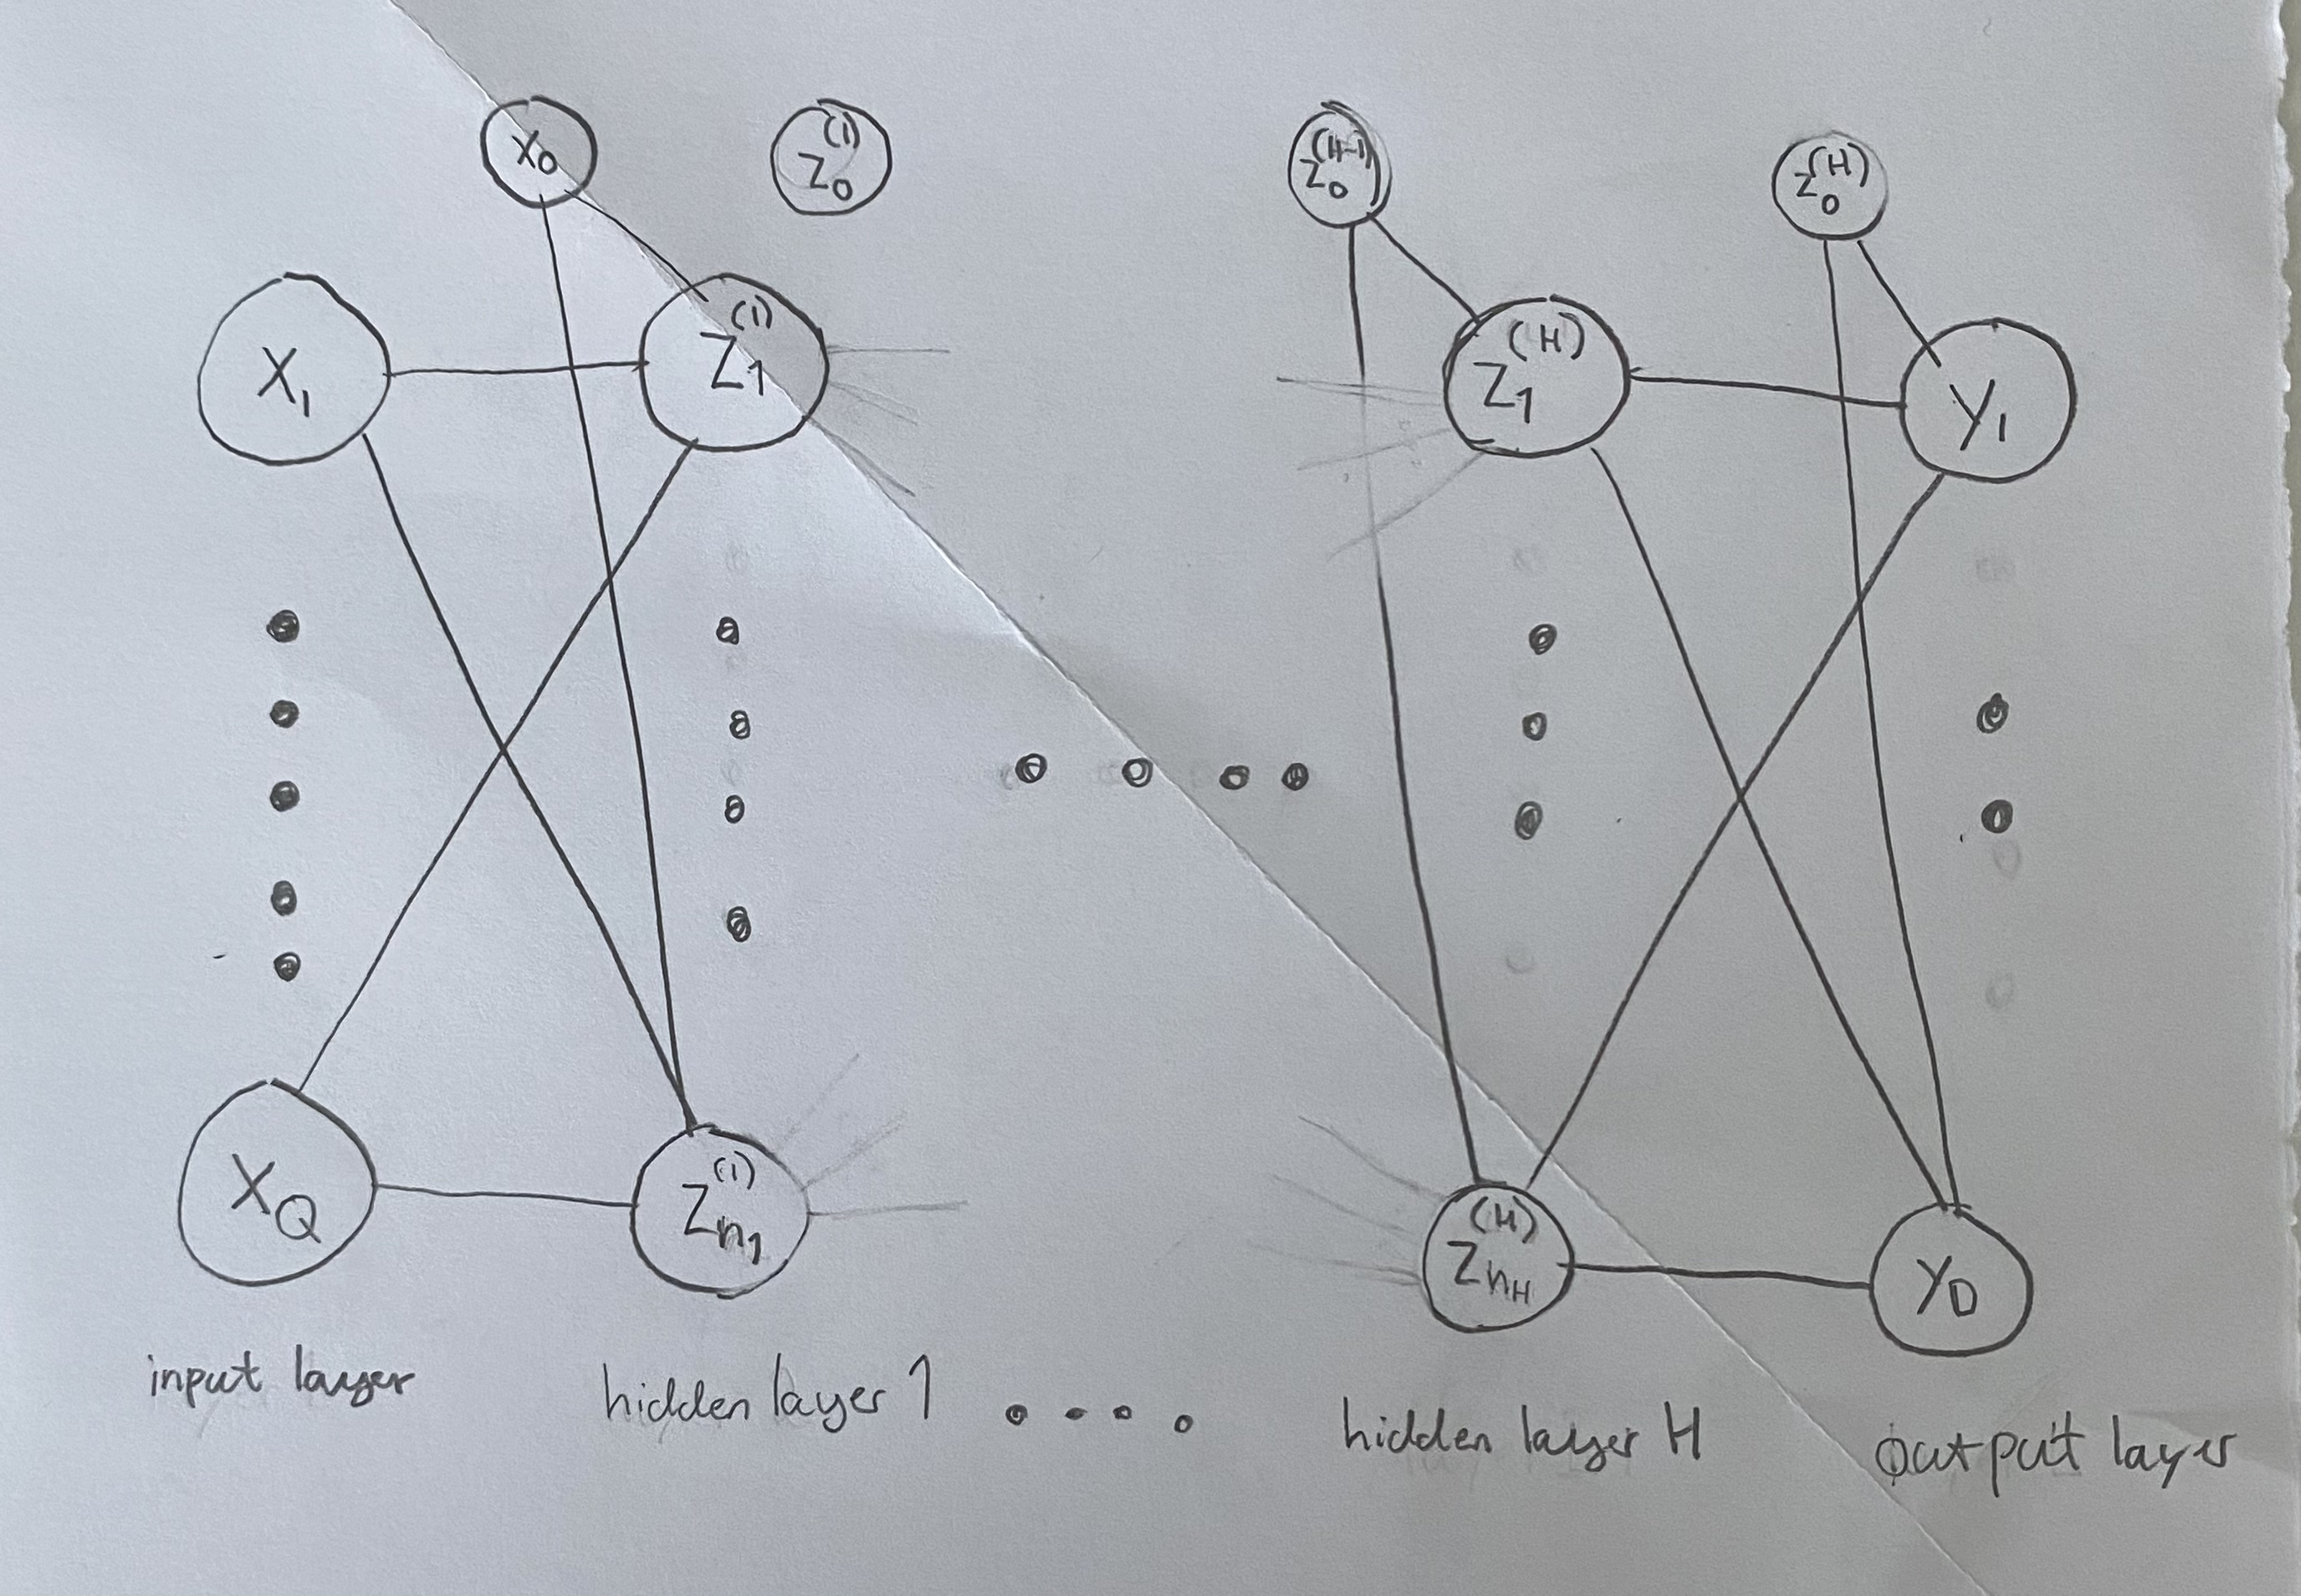 x0 z0(1) z0(H-1) z0(H)
X1 Z1(1) Z1(H) y1
XQ Zn1(1) ZnH(H) yD
input layer hidden layer 1 .... hidden layer H output layer